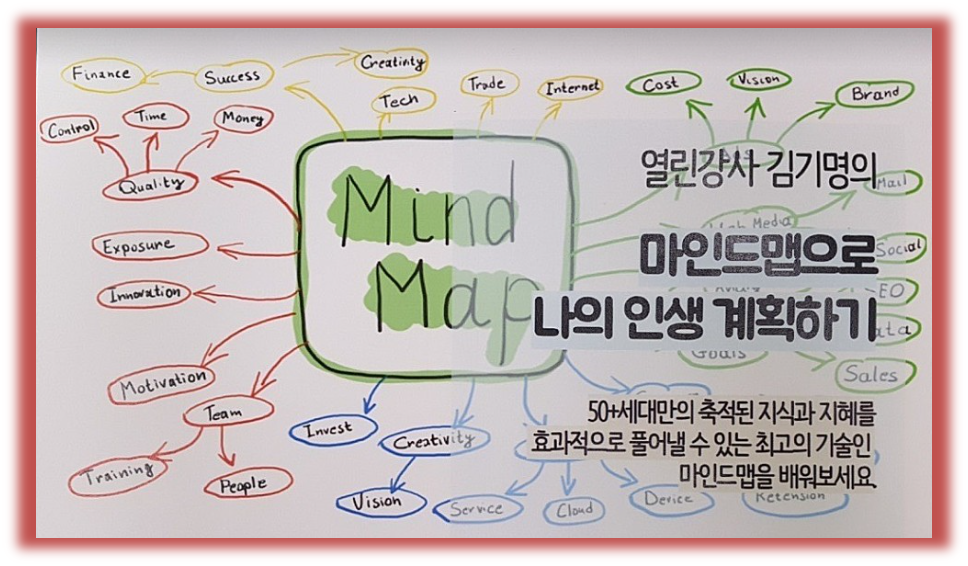 Finance
Success
Creatinty
Tech
Trade
Internet
Cost
Vision
Brand
Control
Time
Money
Quality
Mail
Media
Social
Exposure
Innovation
EO
ata
Goals
Sales
Motivation
Team
Training
People
Mind
Map
Invest
Creativity
Vision
Service
Cloud
Device
Retension
열린강사 김기명의
마인드맵으로
나의 인생 계획하기
50+세대만의 축적된 지식과 지혜를
효과적으로 풀어낼 수 있는 최고의 기술인
마인드맵을 배워보세요.